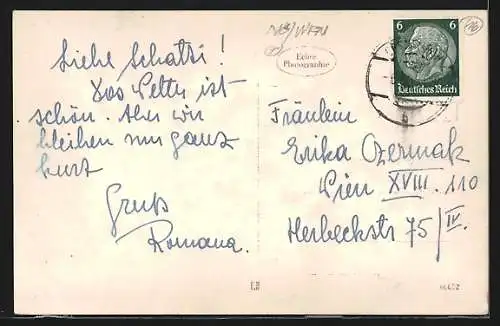 Liebe Schatzi!
Das Wetter ist
schön. Aber wir
bleiben nur ganz
kurz
Gruß
Romana.
Echte
Photographie
6 6
Deutsches Reich
Fräulein
Erika Czermak
Wien XVIII. 110
Herbeckstr 75/IV.